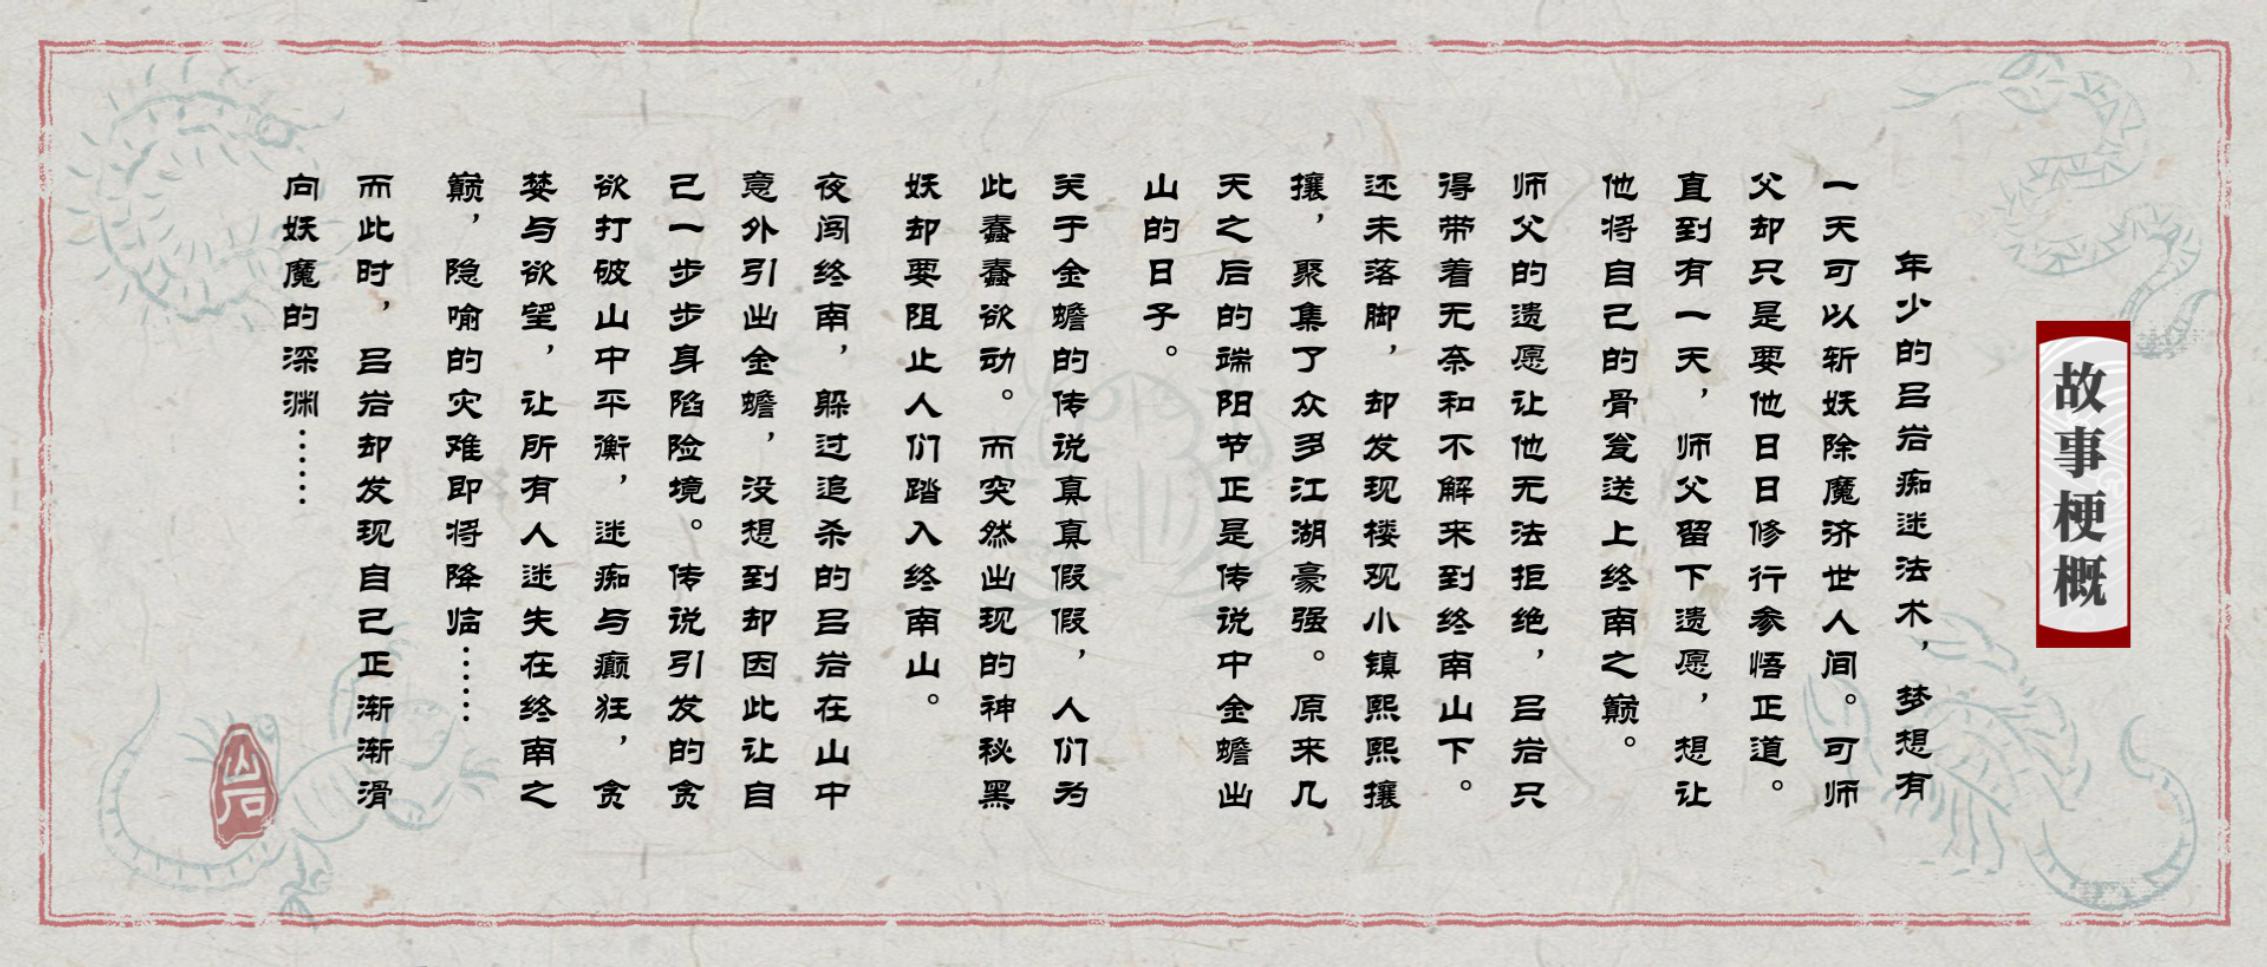 故事梗概
年少的吕岩痴迷法术，梦想有
一天可以斩妖除魔济世人间。可师
父却只是要他日日修行参悟正道。
直到有一天，师父留下遗愿，想让
他将自己的骨瓮送上终南之巅。
师父的遗愿让他无法拒绝，吕岩只
得带着无奈和不解来到终南山下。
还未落脚，却发现楼观小镇熙熙攘
攘，聚集了众多江湖豪强。原来几
天之后的端阳节正是传说中金蟾出
山的日子。
关于金蟾的传说真真假假，人们为
此蠢蠢欲动。而突然出现的神秘黑
妖却要阻止人们踏入终南山。
夜闯终南，躲过追杀的吕岩在山中
意外引出金蟾，没想到却因此让自
己一步步身陷险境。传说引发的贪
欲打破山中平衡，迷痴与癫狂，贪
婪与欲望，让所有人迷失在终南之
巅，隐喻的灾难即将降临……
而此时，吕岩却发现自己正渐渐滑
向妖魔的深渊……
山石